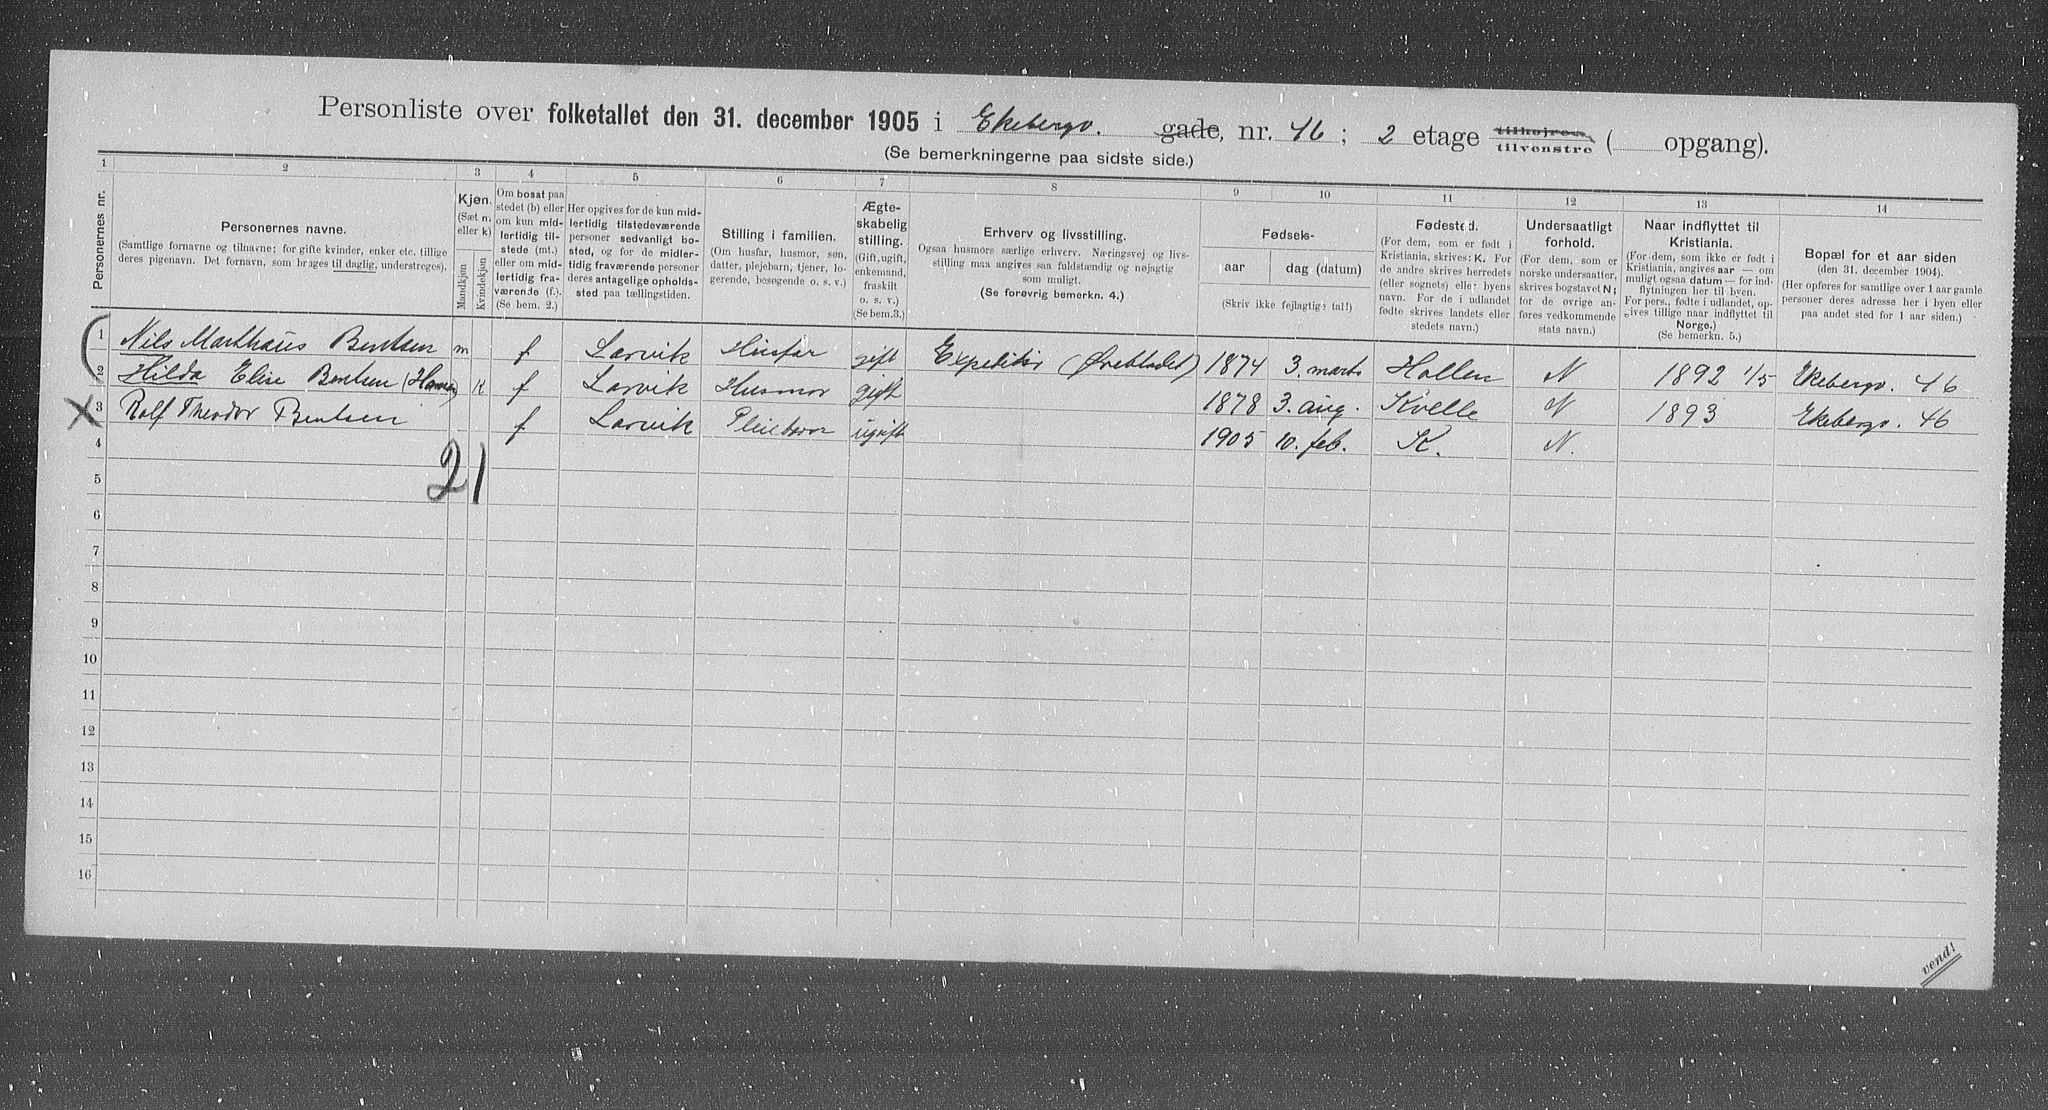 Personliste over folketallet den 31. december 1905 i Ekebergv. gade, nr. 46; 2 etage tilhøjre tilvenstre ( opgang).
(Se bemerkningerne paa sidste side.)
1 2 3 4 5 6 7 8 9 10 11 12 13 14
Personernes nr.
Personernes navne.
(Samtlige fornavne og tilnavne; for gifte kvinder, enker etc. tillige
deres pigenavn. Det fornavn, som bruges til daglig, understreges).
Kjøn.
(Sæt m.
eller k)
Mandkjøn
Kvindekjøn
Om bosat paa
stedet (b) eller
om kun mid-
lertidig til-
stede (mt.)
eller om mid-
lertidig fra-
værende (f.).
(Se bem. 2.)
Her opgives for de kun mid-
lertidig tilstedeværende
personer sedvanligt bo-
sted, og for de midler-
tidig fraværende personer
deres antagelige opholds-
sted paa tællingstiden.
Stilling i familien.
(Om husfar, husmor, søn,
datter, plejebarn, tjener, lo-
gerende, besøgende
o. s. v.)
Ægte-
skabelig
stilling.
(Gift, ugift,
enkemand,
fraskilt
o. s. v.)
(Se bem.3.)
Erhverv og livsstilling.
Ogsaa husmors særlige erhverv. Næringsvej og livs-
stilling maa angives saa fuldstændig og nøjagtig
som muligt.
(Se forøvrig bemerkn. 4.)
Fødsels-
aar
dag (datum)
(Skriv ikke fejlagtige tal!)
Fødested.
(For dem, som er født i
Kristiania, skrives: K. For
de andre skrives herredets
(eller sognets) eller byens
navn. For de i udlandet
fødte skrives landets eller
stedets navn.)
Undersaatligt
forhold.
(For dem, som er
norske undersaatter,
skrives bogstavet N;
for de øvrige an-
føres vedkommende
stats navn.)
Naar indflyttet til
Kristiania.
(For dem, som ikke er født i
Kristiania, angives aar — om
muligt ogsaa datum — for ind-
flytningen her til byen.
For pers., fødte i udlandet, op-
gives tillige naar indflyttet til
Norge.)
(Se bemerkn. 5.)
Bopæl for et aar siden
(den 31. december 1904).
(Her opføres for samtlige over 1 aar gamle
personer deres adresse her i byen eller
paa andet sted for 1 aar siden.)
1 Nils Marthæus Bentsen m f Larvik Husfar gift Expeditør (Ørebladet) 1874 3. marts Hollen N 1892 1/5 Ekebergv. 46
2 Hilda Elise Bentsen K f Larvik Husmor gift 1878 3. aug. Kvelle N 1893 Ekebergv. 46
3 Rolf Theodor Bentsen f Larvik Pleiebarn ugift 1905 10. feb. K. N.
4
21
5
6
7
8
9
10
11
12
13
14
15
16
vend!